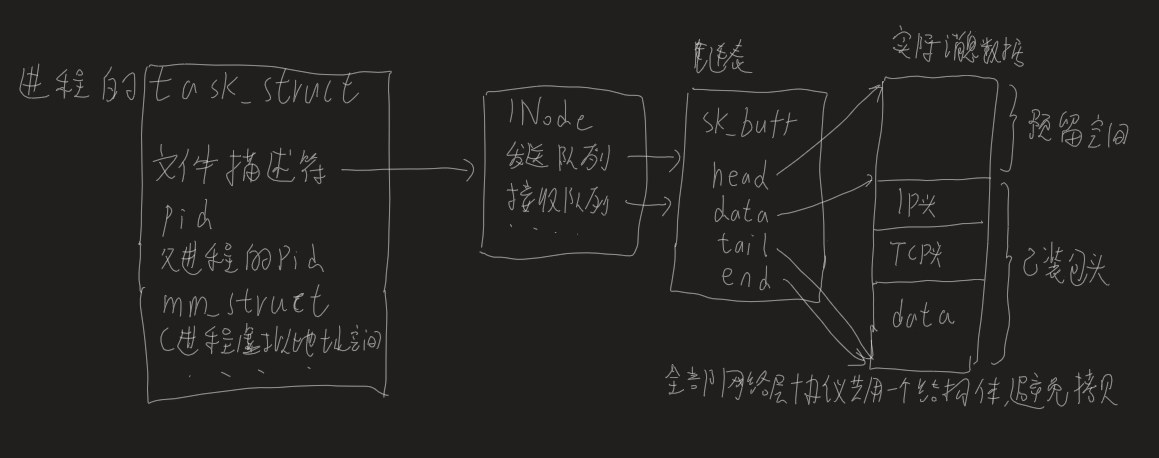 进程的
task_struct
文件描述符
pid
父进程的pid
mm_struct
(进程虚拟地址空间
. . . .
INode
发送队列
接收队列
. . . .
sk_buff
head
data
tail
end
实际消息数据
预留空间
IP头
TCP头
data
已装包头
全部网络层协议共用一个结构体,避免拷贝